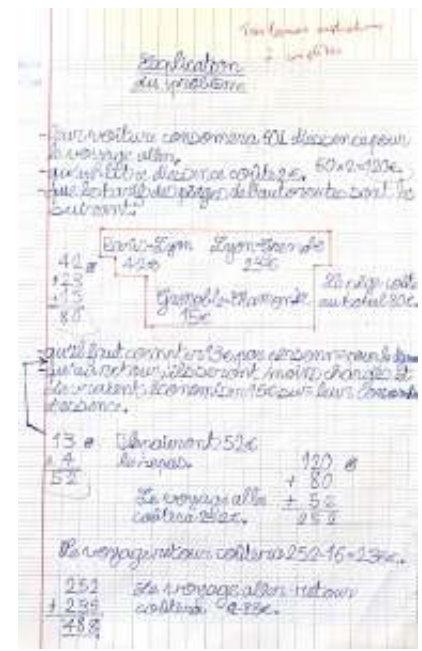 Explication
du problème
- leur voiture consomera 60L d'essence pour
le voyage aller.
- qu'un litre d'essence coûte 2€. 60×2=120€.
- que les tarifs des péages de l'autoroute sont les
suivant:
Paris-Lyon Lyon-Grenoble
42€ 23€
Grenoble-Chamonix
15€
42
+23
+15
80
Le péage coûte
au total 80€.
- qu'il faut compter 13€ par personne pour le
qu'au retour, ils seront moins chargés et
devraient économiser 15€ sur leur
d'essence.
13
× 4
52
Ils paieront 52€
le repas.
120
+ 80
+ 52
252
Le voyage aller
coûtera 252€.
Le voyage retour coûtera 252-15=
252
+
Le voyage aller-retour
coûtera